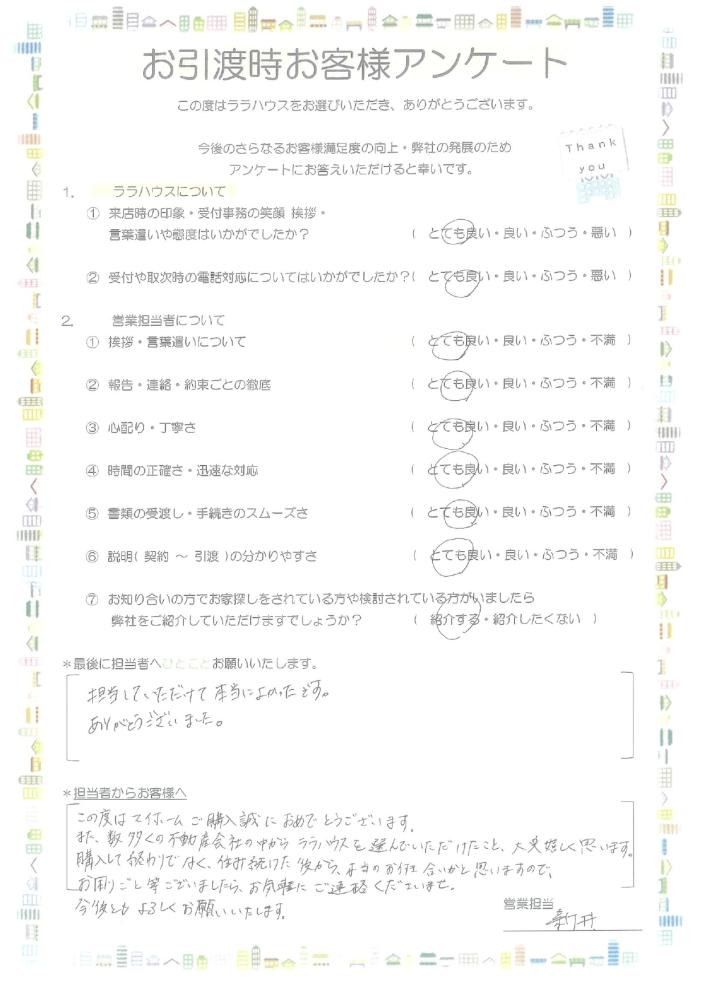 お引渡時お客様アンケート
この度はララハウスをお選びいただき、ありがとうございます。
今後のさらなるお客様満足度の向上・弊社の発展のため
アンケートにお答えいただけると幸いです。
Thank
you
1. ララハウスについて
① 来店時の印象・受付事務の笑顔 挨拶・
言葉遣いや態度はいかがでしたか？ ( とても良い・良い・ふつう・悪い )
② 受付や取次時の電話対応についてはいかがでしたか？( とても良い・良い・ふつう・悪い )
2. 営業担当者について
① 挨拶・言葉遣いについて ( とても良い・良い・ふつう・不満 )
② 報告・連絡・約束ごとの徹底 ( とても良い・良い・ふつう・不満 )
③ 心配り・丁寧さ ( とても良い・良い・ふつう・不満 )
④ 時間の正確さ・迅速な対応 ( とても良い・良い・ふつう・不満 )
⑤ 書類の受渡し・手続きのスムーズさ ( とても良い・良い・ふつう・不満 )
⑥ 説明( 契約 ～ 引渡 )の分かりやすさ ( とても良い・良い・ふつう・不満 )
⑦ お知り合いの方でお家探しをされている方や検討されている方がいましたら
弊社をご紹介していただけますでしょうか？ ( 紹介する・紹介したくない )
＊最後に担当者へひとことお願いいたします。
担当していただけて本当によかったです。
ありがとうございました。
＊担当者からお客様へ
この度はマイホームご購入誠におめでとうございます。
また、数多くの不動産会社の中からララハウスを選んでいただけたこと、大変嬉しく思います。
購入して終わりでなく、住み続けた後から、本当のお付き合いかと思いますので、
お困りごと等ございましたら、お気軽にご連絡くださいませ。
今後ともよろしくお願いいたします。
営業担当
新井